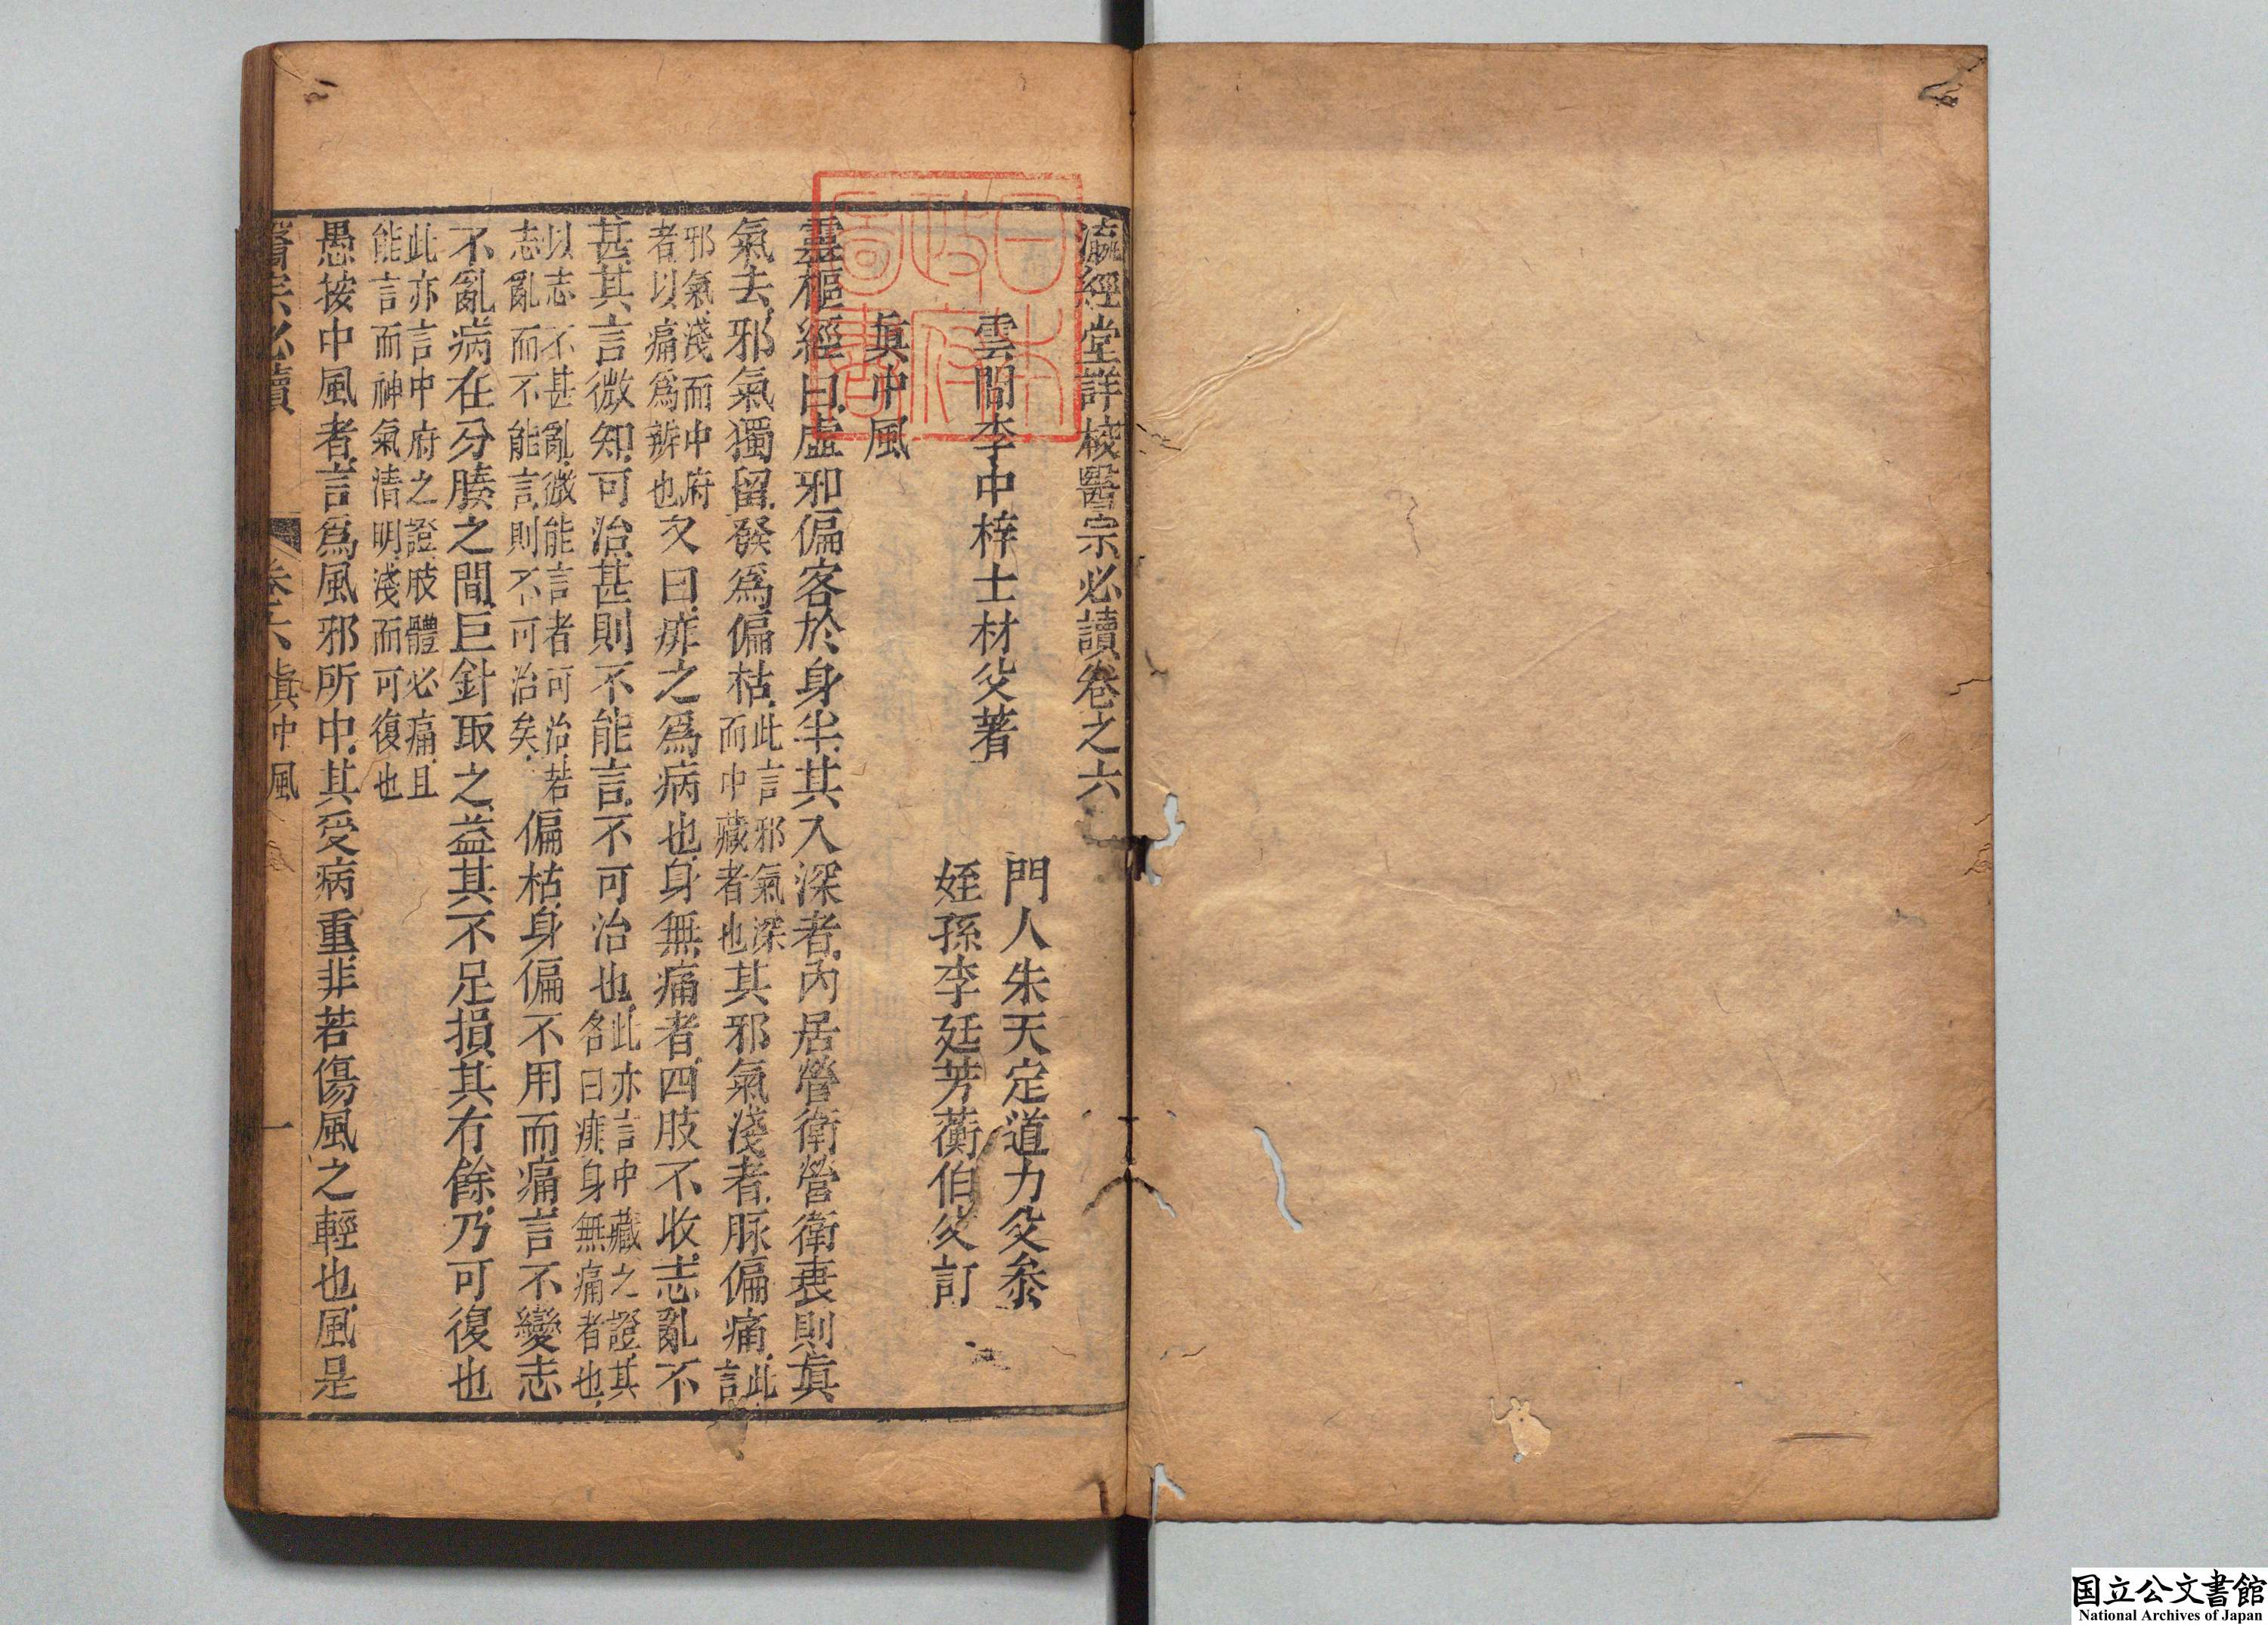 瀛經堂詳校醫宗必讀卷之六
門人朱天定道力父叅
雲間李中梓士材父著
姪孫李廷芳蘅伯父訂
眞中風
靈樞經曰虛邪偏客於身半其入深者內居營衛營衛衰則眞
氣去邪氣獨留發爲偏枯此言邪氣深而中藏者也其邪氣淺者脉偏痛此言
邪氣淺而中府者以痛爲辨也又曰痱之爲病也身無痛者四肢不收志亂不
甚其言微知可治甚則不能言不可治也此亦言中藏之證其名曰痱身無痛者也
以志不甚亂微能言者可治若志亂而不能言則不可治矣偏枯身偏不用而痛言不變志
不亂病在分腠之間巨針取之益其不足損其有餘乃可復也
此亦言中府之證肢體必痛且能言而神氣清明淺而可復也
愚按中風者言爲風邪所中其受病重非若傷風之輕也風是
醫宗必讀 卷六 眞中風 一
日本政府圖書
国立公文書館
National Archives of Japan